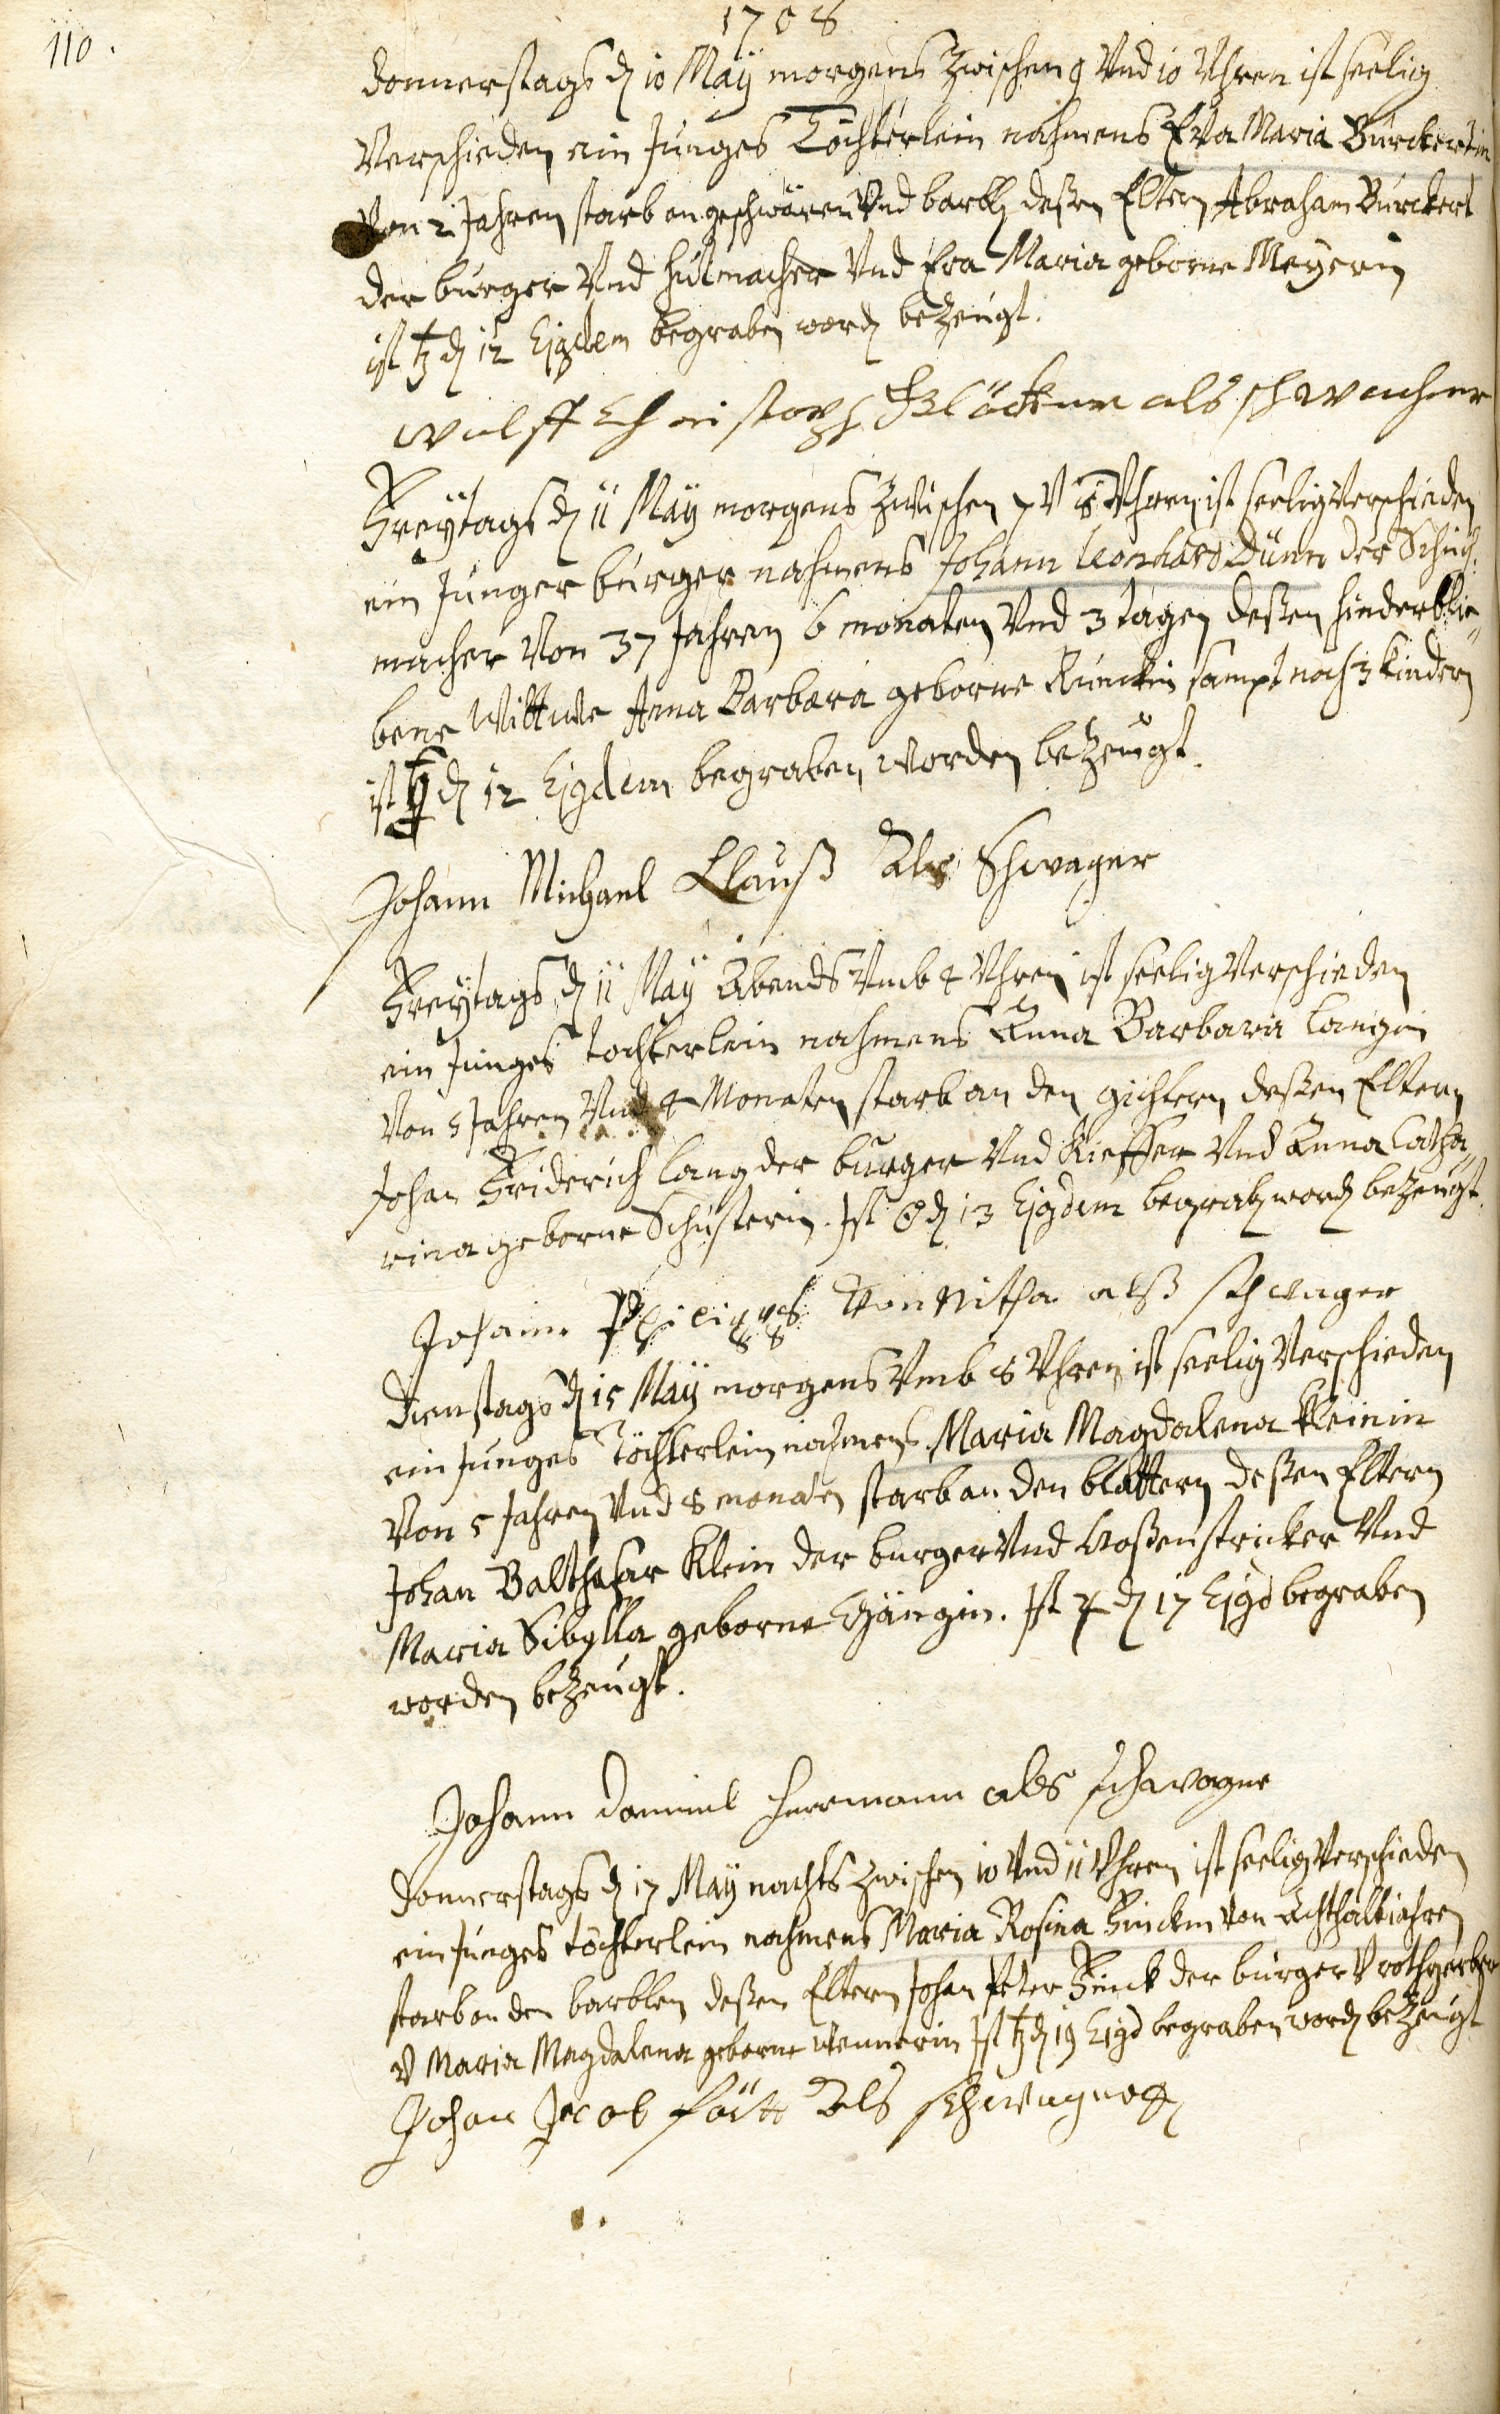 110.
1708
Donnerstags d. 10 Maÿ morgens zwischen 9 Vnd 10 Vhren ist seelig
Verschieden ein Junges Töchterlein nahmens Eva Maria Burckertin
Von 2 Jahren starb an geschwären Vnd barbl deßen Eltern Abraham Burckert
der burger Vnd hutmacher Vnd Eva Maria geborne Meyerin
ist ♄ d. 12 Ejsdem begraben word. bezeugt.
Wulff Christoph als schwacher
Freÿtags d. 11 Maÿ morgens zwischen 7 V 8 Vhren ist seelig Verschieden
ein Junger burger nahmens Johann Leonhard Dünn der Schuch-
macher Von 37 Jahren 6 monaten Vnd 3 tagen deßen hinderblie„
bene Wittwe Anna Barbara geborne sampt noch 3 kindern
ist ♄ d. 12 Ejsdem begraben worden bezeugt.
Johann Michael Clauß Als Schwager
Freÿtags d. 11 Maÿ Abends Vmb 4 Vhren ist seelig Verschieden
ein Junges tochterlein nahmens Anna Barbara Langin
Von 5 Jahren Vnd 4 Monaten starb an den gichtern deßen Eltern
Johan Friderich Lang der burger Vnd Kieffer Vnd Anna Catha„
rina geborne Schusterin. Ist ☉ d. 13 Ejsdem begrab. word. bezeugt.
Johann Philippus alß schwager
Dienstags d. 15 Maÿ morgens Vmb 8 Vhren ist seelig Verschieden
ein Junges Töchterlein nahmens Maria Magdalena Kleinin
Von 5 Jahren Vnd 8 monaten starb an den blattern deßen Eltern
Johan Balthasar Klein der burger Vnd Hoßenstricker Vnd
Maria Sibylla geborne Gängin. Ist ♃ d. 17 Ejsd begraben
worden bezeugt.
Johann Daniel Herrmann als schwager
Donnerstags d. 17 Maÿ nachts zwischen 10 Vnd 11 Vhren ist seelig Verschieden
ein Junges töchterlein nahmens Maria Rosina Finckin von Achthalb jahren
starb an den barblen deßen Eltern Johan Peter Finck der burger V rothgerber
V Maria Magdalena geborne Wennerin Ist ♄ d. 19 Ejsd begraben word. bezeugt
Johan Jacob als schwager